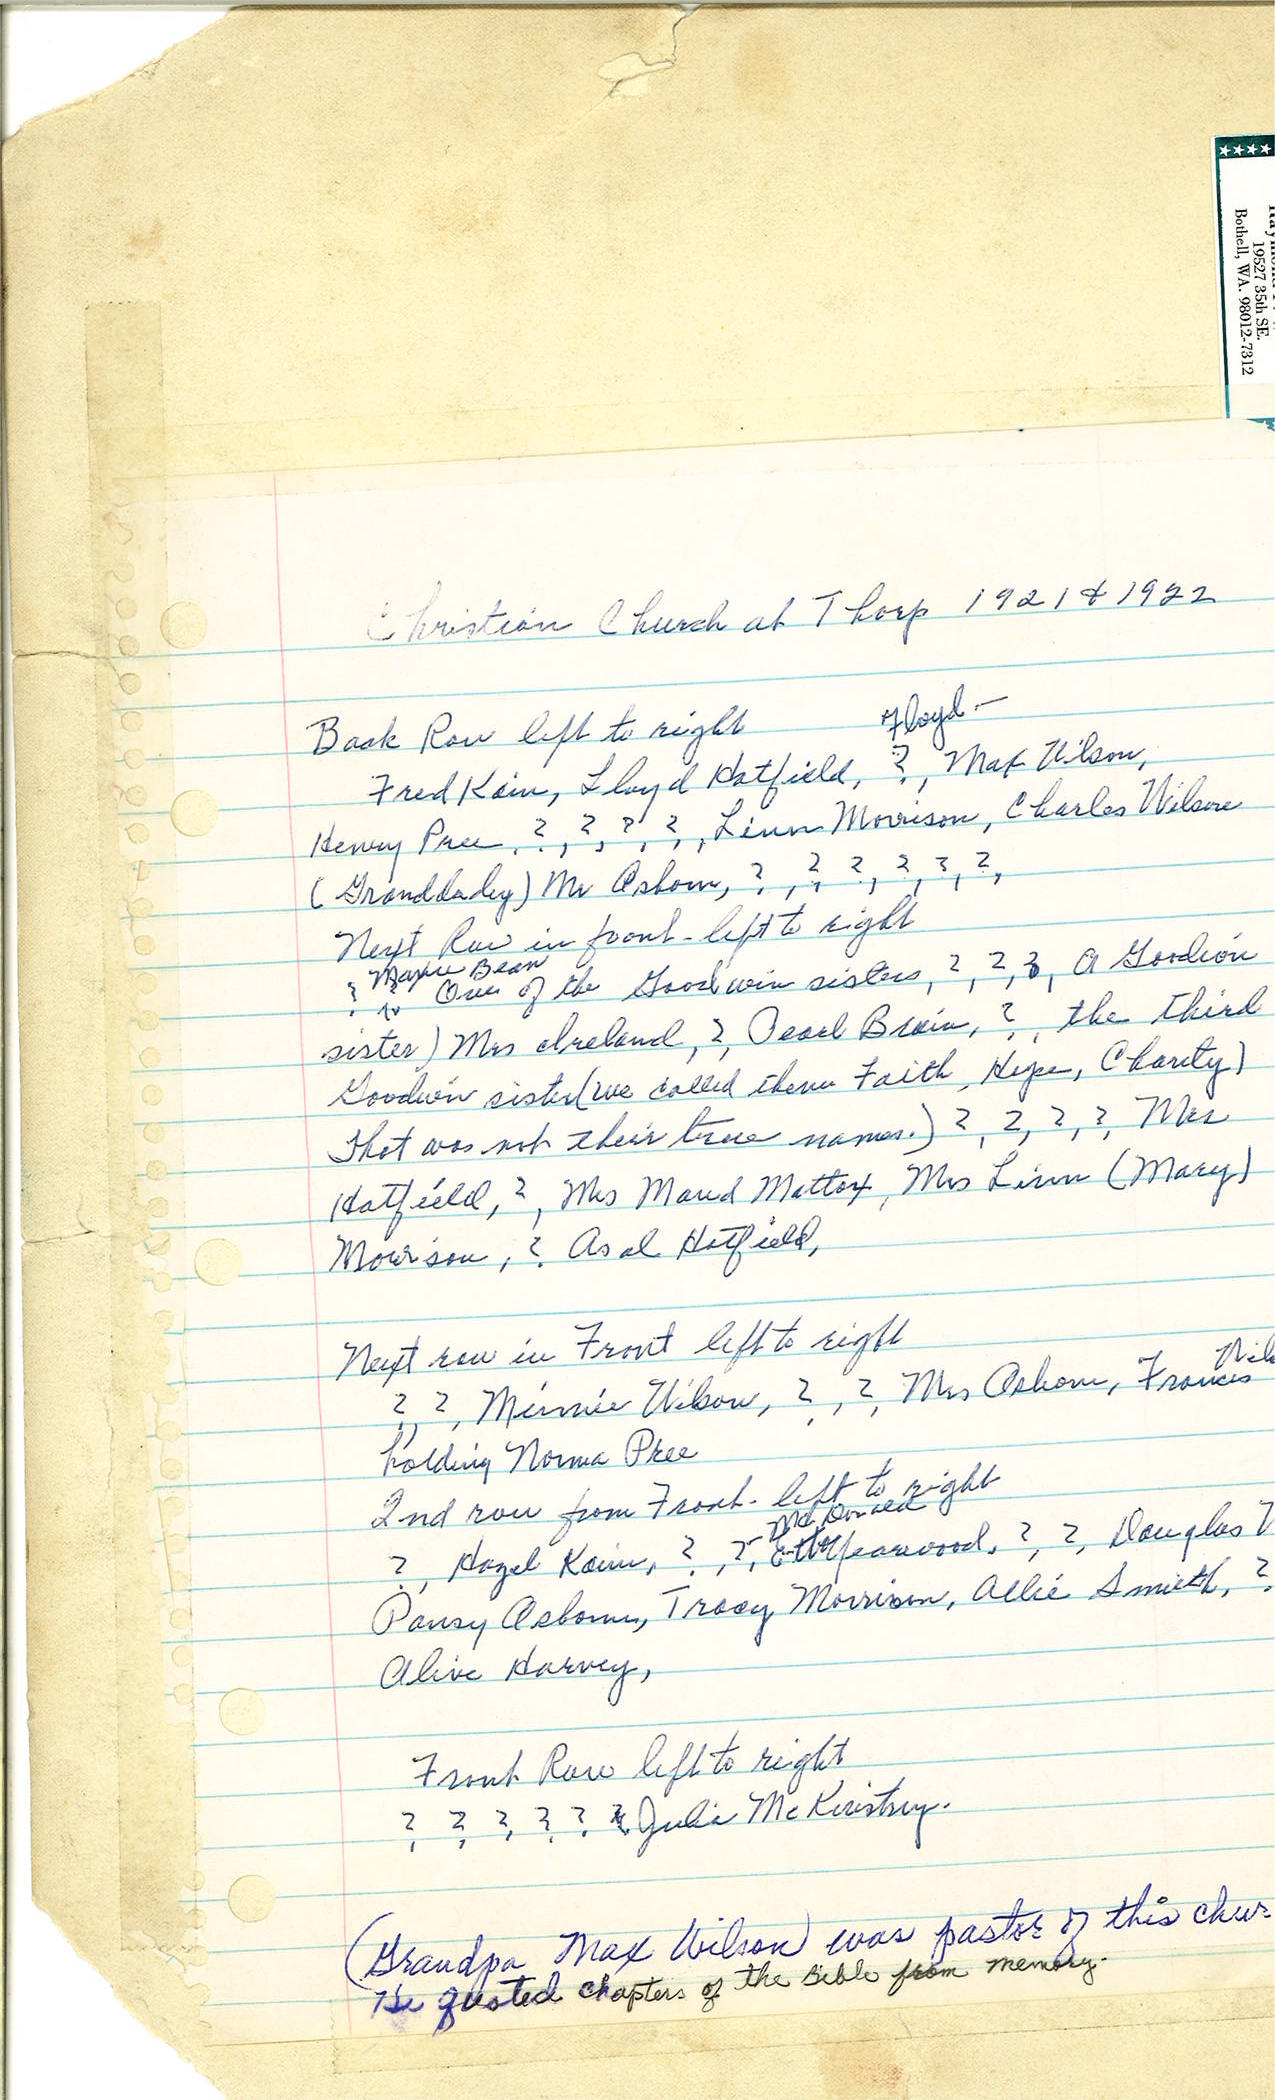 ★★★★
19527 35th SE.
Bothell, WA. 98012-7312
Christian Church at Thorp 1921 & 1922
Back Row left to right
Floyd -
Fred Kain, Lloyd Hatfield, ?, Max Wilson,
Henry Pree, ?, ?, ?, ?, Linn Morrison, Charles Wilson
(Granddady) Mr Osborn, ?, ?, ?, ?, ?, ?,
Next Row in front - left to right
Bean
? ? One of the Goodwin sisters, ?, ?, ?, A Goodwin
sister) Mrs Ireland, ?, Pearl Brain, ?, the third
Goodwin sister (we called them Faith, Hope, Charity)
That was not their true names.) ?, ?, ?, ?, Mrs
Hatfield, ?, Mrs Maud Mattox, Mrs Linn (Mary)
Morrison, ? Asal Hatfield,
Next row in Front left to right
?, ?, Minnie Wilson, ?, ?, Mrs Osborn, Frances
holding Norma Pree
2nd row from Front - left to right
McDonald
?, Hazel Kain, ?, ?, Yearwood, ?, ?, Douglas
Pansy Osborn, Tracy Morrison, Allie Smith, ?
Alive Harvey,
Front Row left to right
? ? ? ? ? ? Julia McKinstry.
(Grandpa Max Wilson) was pastor of this chur
He quoted chapters of the Bible from memory.